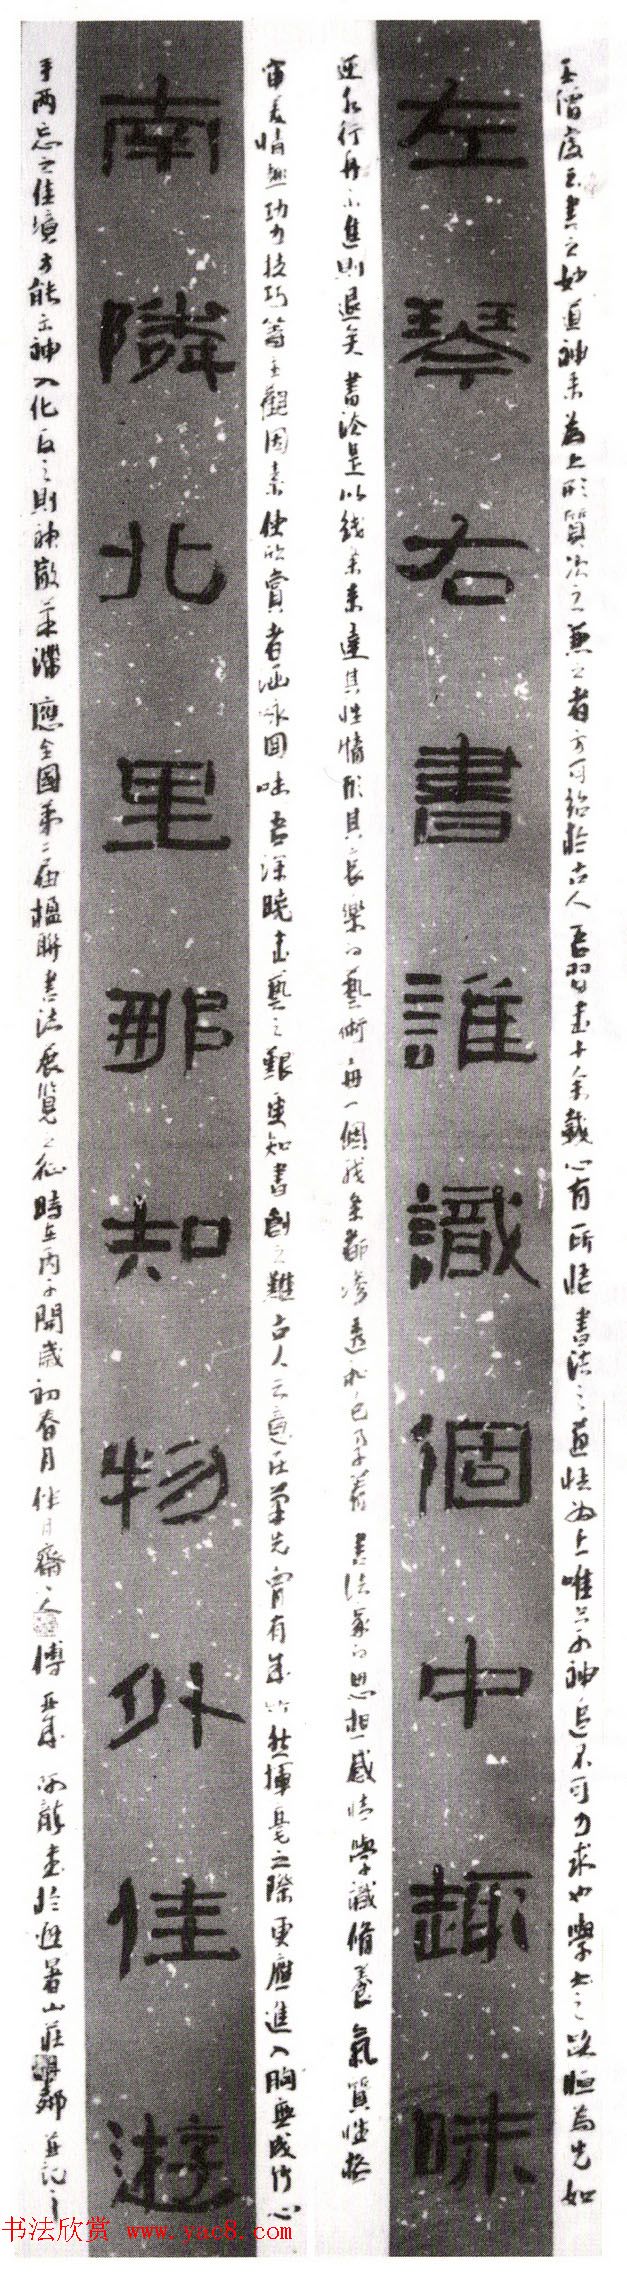 王僧虔云書之妙道神采為上形質次之兼之者方可紹於古人吾習書十余載心有所悟書法之道悟為上唯其可神追不可力求也學書之路恒為先如
左琴右書誰識個中趣味
逆水行舟不進則退矣書法是以线条来達其性情形其哀樂的藝術每一個线条都滲透和包孕着書法家的思想感情學識脩養氣質性格
審美情趣功力技巧等主觀因素使欣賞者涵咏回味吾深曉書藝之艱更知書創之難古人云意在筆先胸有成竹然揮毫之際更應進入胸無成竹心
南隣北里那知物外佳遊
手两忘之佳境方能出神入化反之則神散筆滯應全國第二届楹聯書法展覽之征時在丙子開歲初春月 齋人傅亞成 書於 山莊 並記之
书法欣赏 www.yac8.com